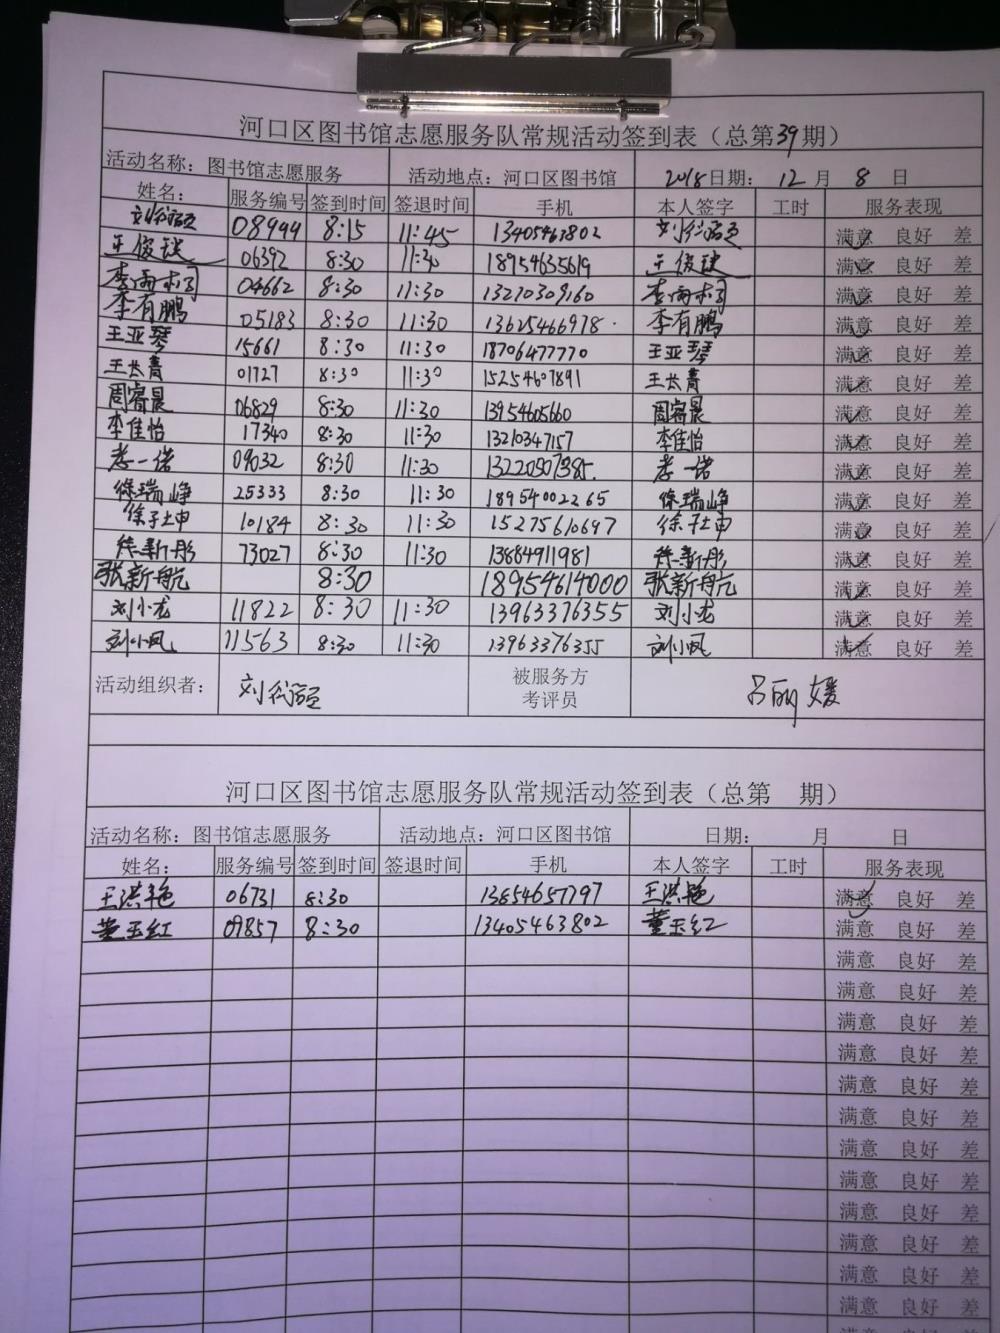 河口区图书馆志愿服务队常规活动签到表（总第39期）
活动名称：图书馆志愿服务 活动地点：河口区图书馆 2018日期：12月8日
姓名： 服务编号 签到时间 签退时间 手机 本人签字 工时 服务表现
08999 8:15 11:45 13405463802 满意 良好 差
王俊 06392 8:30 11:30 18954635619 王俊 满意 良好 差
李雨桐 04662 8:30 11:30 13210309160 李雨桐 满意 良好 差
李有鹏 05183 8:30 11:30 13625466978 李有鹏 满意 良好 差
王亚琴 15661 8:30 11:30 18706477770 王亚琴 满意 良好 差
王长青 01727 8:30 11:30 15254607891 王长青 满意 良好 差
周睿晨 06829 8:30 11:30 13954605660 周睿晨 满意 良好 差
李佳怡 17340 8:30 11:30 13210347157 李佳怡 满意 良好 差
李一诺 09032 8:30 11:30 13220907385 李一诺 满意 良好 差
徐瑞峥 25333 8:30 11:30 18954002265 徐瑞峥 满意 良好 差
徐子坤 10184 8:30 11:30 15275610697 徐子坤 满意 良好 差
徐新彤 73027 8:30 11:30 13684911981 徐新彤 满意 良好 差
张新航 8:30 18954614000 张新航 满意 良好 差
刘小龙 11822 8:30 11:30 13963376355 刘小龙 满意 良好 差
刘小凤 11563 8:30 11:30 13963376355 刘小凤 满意 良好 差
活动组织者： 被服务方考评员 吕丽媛
河口区图书馆志愿服务队常规活动签到表（总第 期）
活动名称：图书馆志愿服务 活动地点：河口区图书馆 日期： 月 日
姓名： 服务编号 签到时间 签退时间 手机 本人签字 工时 服务表现
王洪艳 06731 8:30 13854657797 王洪艳 满意 良好 差
董玉红 09857 8:30 13405463802 董玉红 满意 良好 差
满意 良好 差
满意 良好 差
满意 良好 差
满意 良好 差
满意 良好 差
满意 良好 差
满意 良好 差
满意 良好 差
满意 良好 差
满意 良好 差
满意 良好 差
满意 良好 差